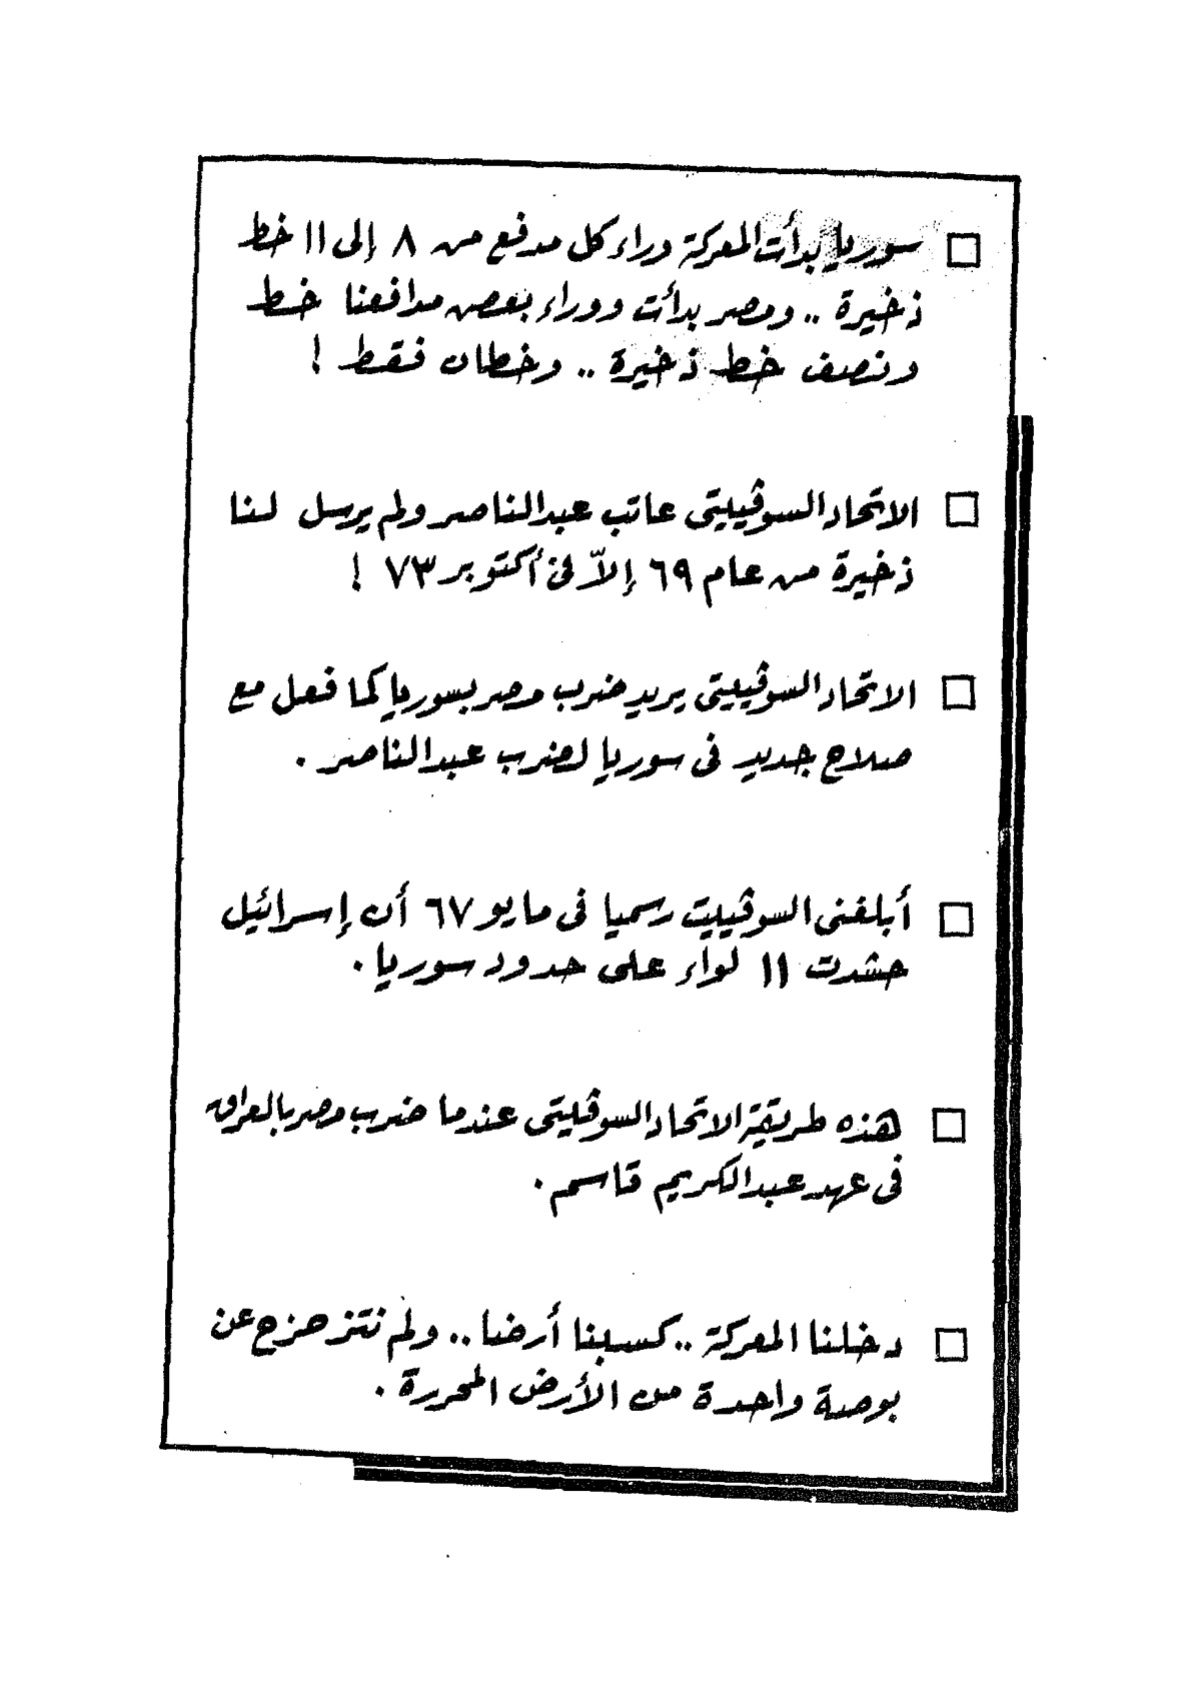 □ سوريا بدأت المعركة وراء كل مدفع من ٨ إلى ١١ خط
ذخيرة .. ومصر بدأت ووراء بعض مدافعنا خط
ونصف خط ذخيرة .. وخطان فقط !
□ الاتحاد السوڤييتى عاتب عبدالناصر ولم يرسل لنا
ذخيرة من عام ٦٩ إلاّ فى أكتوبر ٧٣ !
□ الاتحاد السوڤييتى يريد ضرب مصر بسوريا كما فعل مع
صلاح جديد فى سوريا لضرب عبدالناصر .
□ أبلغنى السوڤييت رسميا فى مايو ٦٧ أن إسرائيل
حشدت ١١ لواء على حدود سوريا .
□ هذه طريقة الاتحاد السوڤيتى عندما ضرب مصر بالعراق
فى عهد عبدالكريم قاسم .
□ دخلنا المعركة .. كسبنا أرضا .. ولم نتزحزح عن
بوصة واحدة من الأرض المحررة .